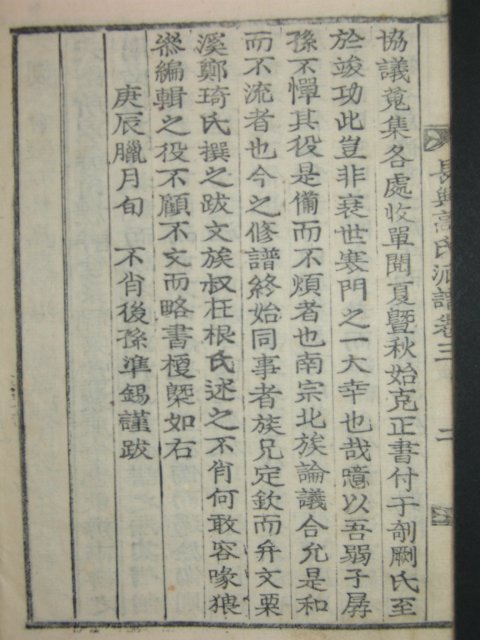 長興高氏派譜卷三 二
協議蒐集各處收單閱夏曁秋始克正書付于剞劂氏至
於竣功此豈非衰世寒門之一大幸也哉噫以吾弱子孱
孫不憚其役是備而不煩者也南宗北族論議合允是和
而不流者也今之修譜終始同事者族兄定欽而弁文栗
溪鄭琦氏撰之跋文族叔在根氏述之不肖何敢容喙猥
忝編輯之役不顧不文而略書梗槩如右
庚辰臘月旬 不肖後孫準錫謹跋